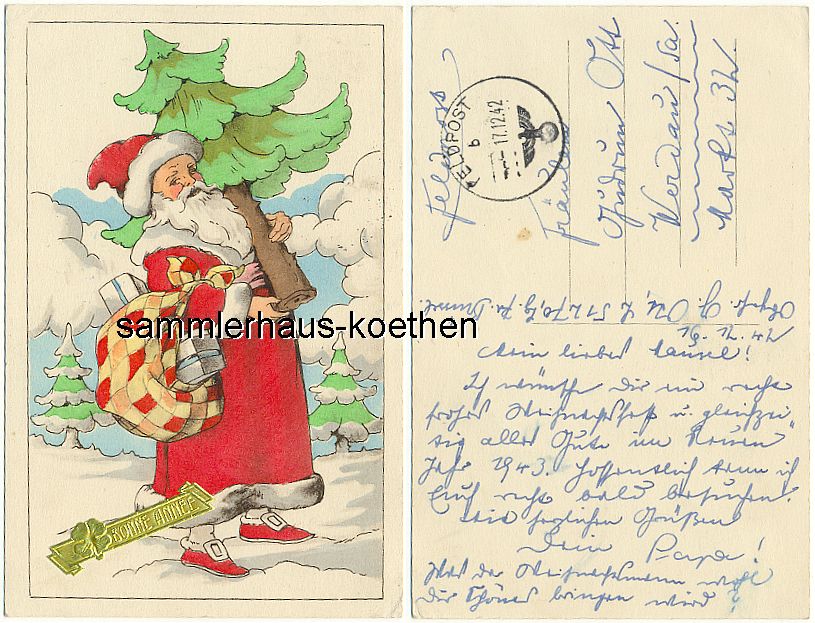 BONNE ANNÉE
sammlerhaus-koethen
Feldpost
FELDPOST
b
17.12.42
Fräulein
Gudrun Ott
Werdau/Sa.
Markt 32.
16.12.42
Mein liebes Mausel!
Ich wünsche Dir ein recht
frohes Weihnachtsfest u. gleichzei
tig alles Gute im Neuen
Jahr 1943. Hoffentlich kann ich
Euch recht bald besuchen.
Mit herzlichen Grüßen
Dein Papa!
Was der Weihnachtsmann wohl
Dir Schönes bringen wird?